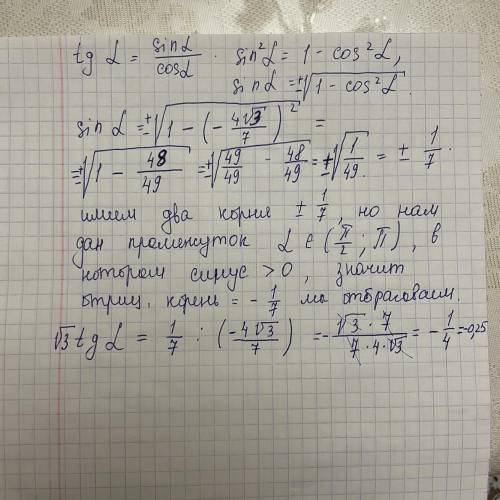 tg α = sinα/cosα . sin²α = 1 - cos²α,
sin α = ±√(1 - cos²α).
sin α = ±√(1 - (-4√3/7)²) =
= ±√(1 - 48/49) = ±√(49/49 - 48/49) = ±√(1/49) = ± 1/7.
имеем два корня ± 1/7, но нам
дан промежуток α ∈ (π/2; π), в
котором синус > 0, значит
отриц. корень = - 1/7 мы отбрасоваем.
√3 tg α = 1/7 : (-4√3/7) = - √3 · 7/7 · 4 · √3 = - 1/4 = -0,25